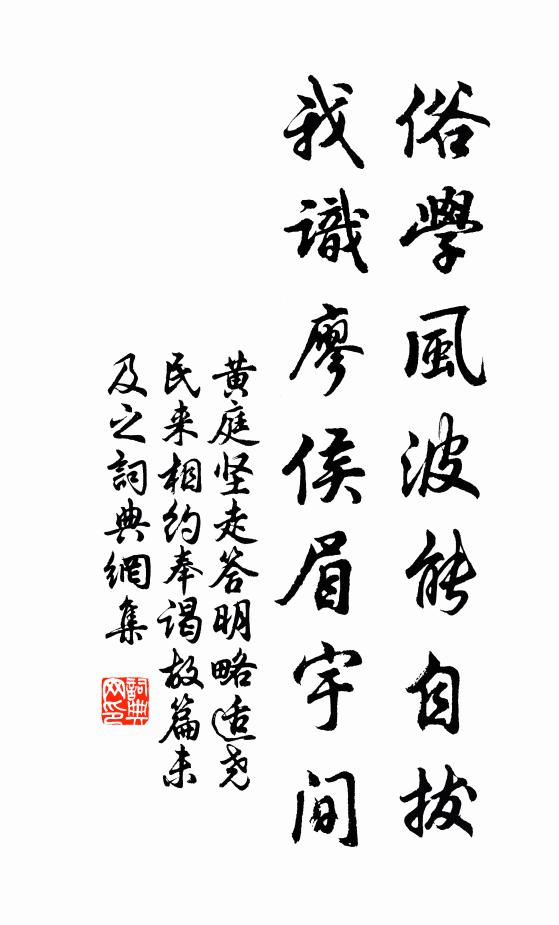 俗學風波能自拔
我識廖侯眉宇間
黄庭坚走答明略适尧
民来相约奉谒故篇末
及之詞典網集
詞典
网印